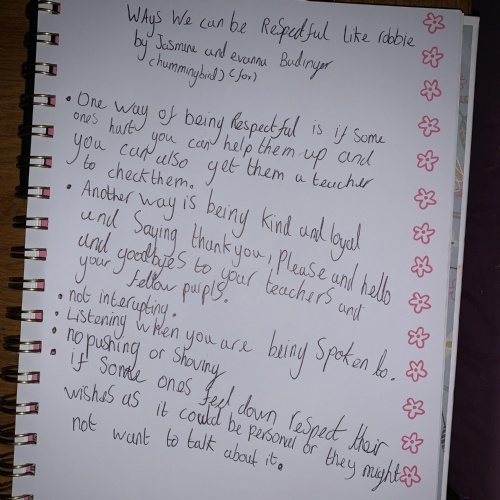 WAys We can be Respectful Like robbie
by Jasmine and evanna Budinger
(hummingbird) (fox)
• One way of being Respectful is if some
ones hurt you can help them up and
you can also get them a teacher
to check them.
• Another way is being kind and loyal
and Saying thank you, please and hello
and goodbyes to your teachers and
your fellow pulpls.
• not interupting.
• Listening when you are being Spoken to.
• no pushing or shoving
• if Some ones feel down respect their
wishes as it could be personal or they might
not want to talk about it.